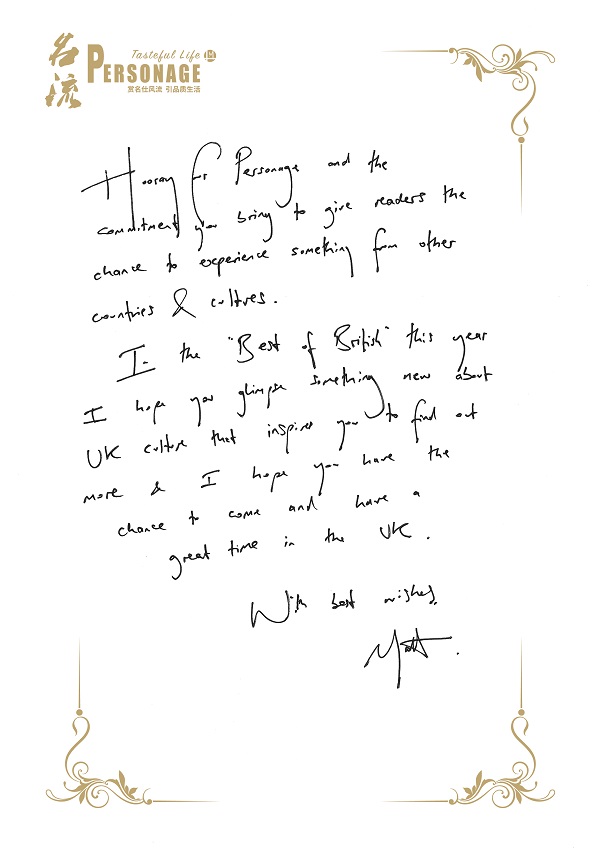 名流
Tasteful Life
PERSONAGE
赏名仕风流 引品质生活
Hooray for Personage and the
commitment you bring to give readers the
chance to experience something from other
countries & cultures.
In the "Best of British" this year
I hope you glimpse something new about
UK culture that inspires you to find out
more & I hope you have the
chance to come and have a
great time in the UK.
With best wishes,
Matt.